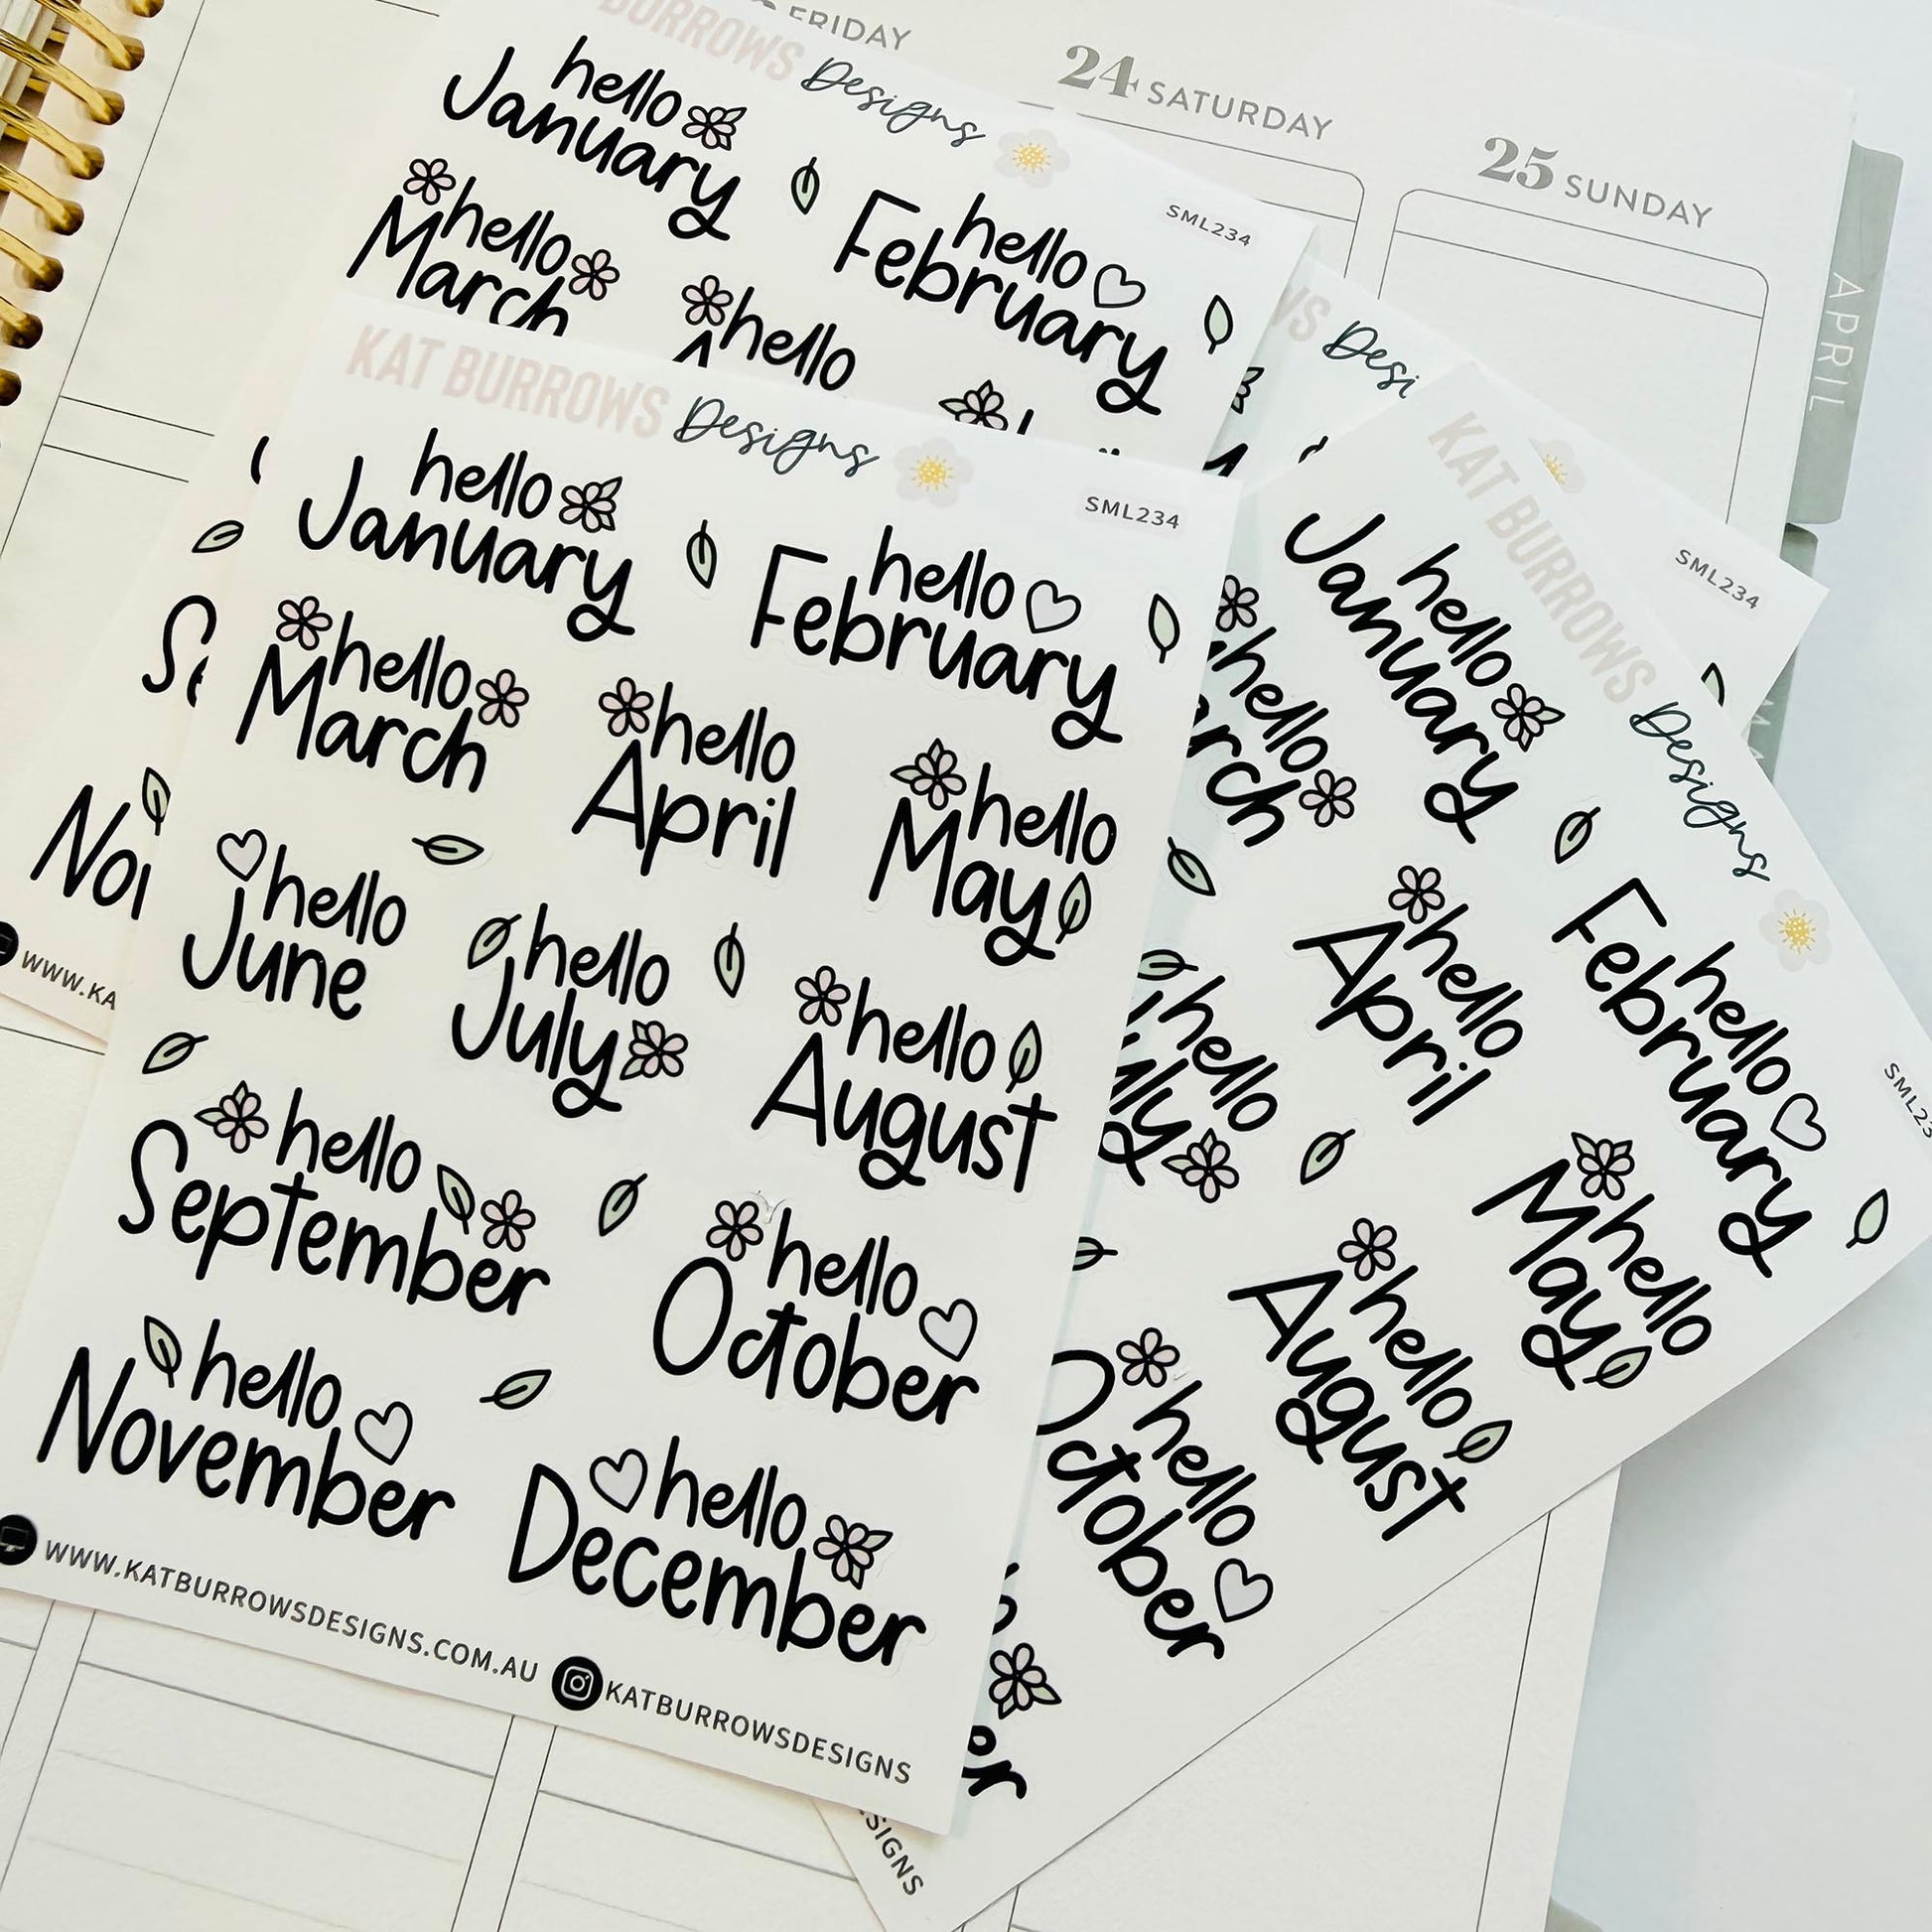 FRIDAY
24 SATURDAY
25 SUNDAY
APRIL
BURROWS Designs
SML234
hello
January
hello
February
hello
March
hello
Desi
SML234
KAT BURROWS Designs
SML234
hello
January
hello
February
hello
March
hello
April
hello
May
hello
June
hello
July
hello
August
hello
September
hello
October
hello
November
hello
December
WWW.KATBURROWSDESIGNS.COM.AU
KATBURROWSDESIGNS
WWW.KA
KAT BURROWS Designs
hello
January
hello
February
hello
hello
April
hello
May
hello
hello
August
hello
October